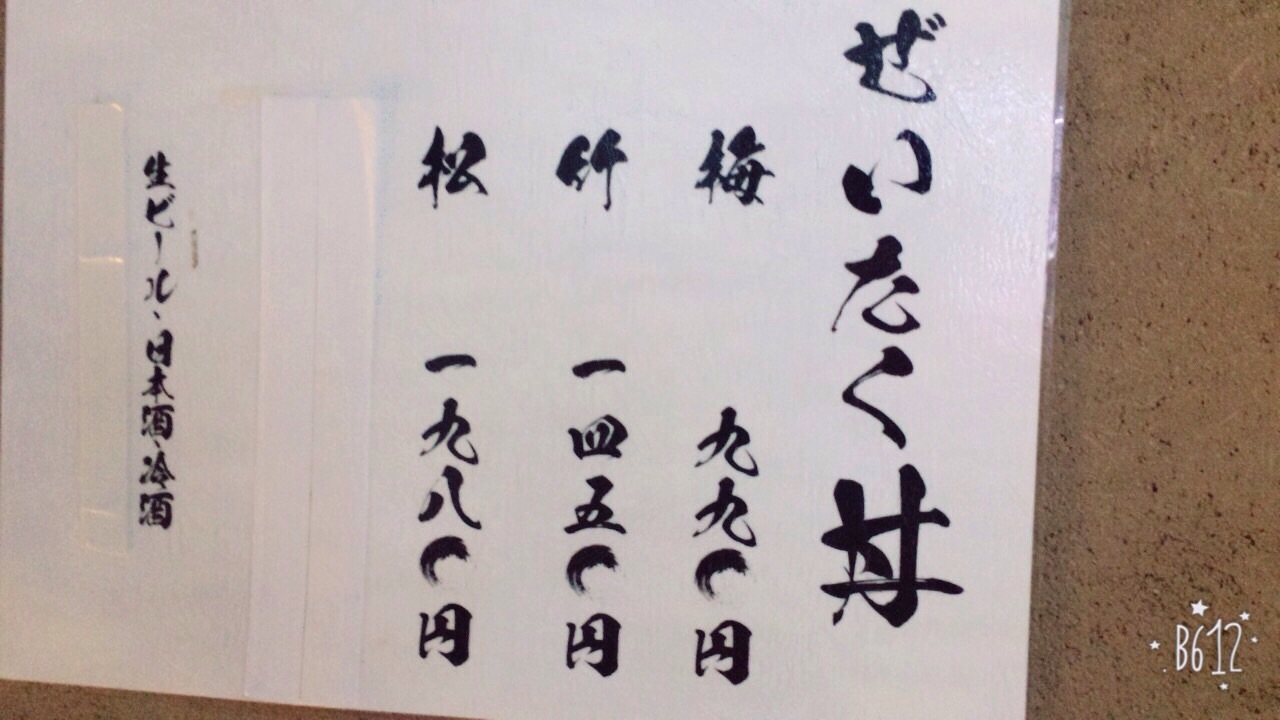 ぜいたく丼
梅 九九〇円
竹 一四五〇円
松 一九八〇円
生ビール、日本酒、冷酒
B612